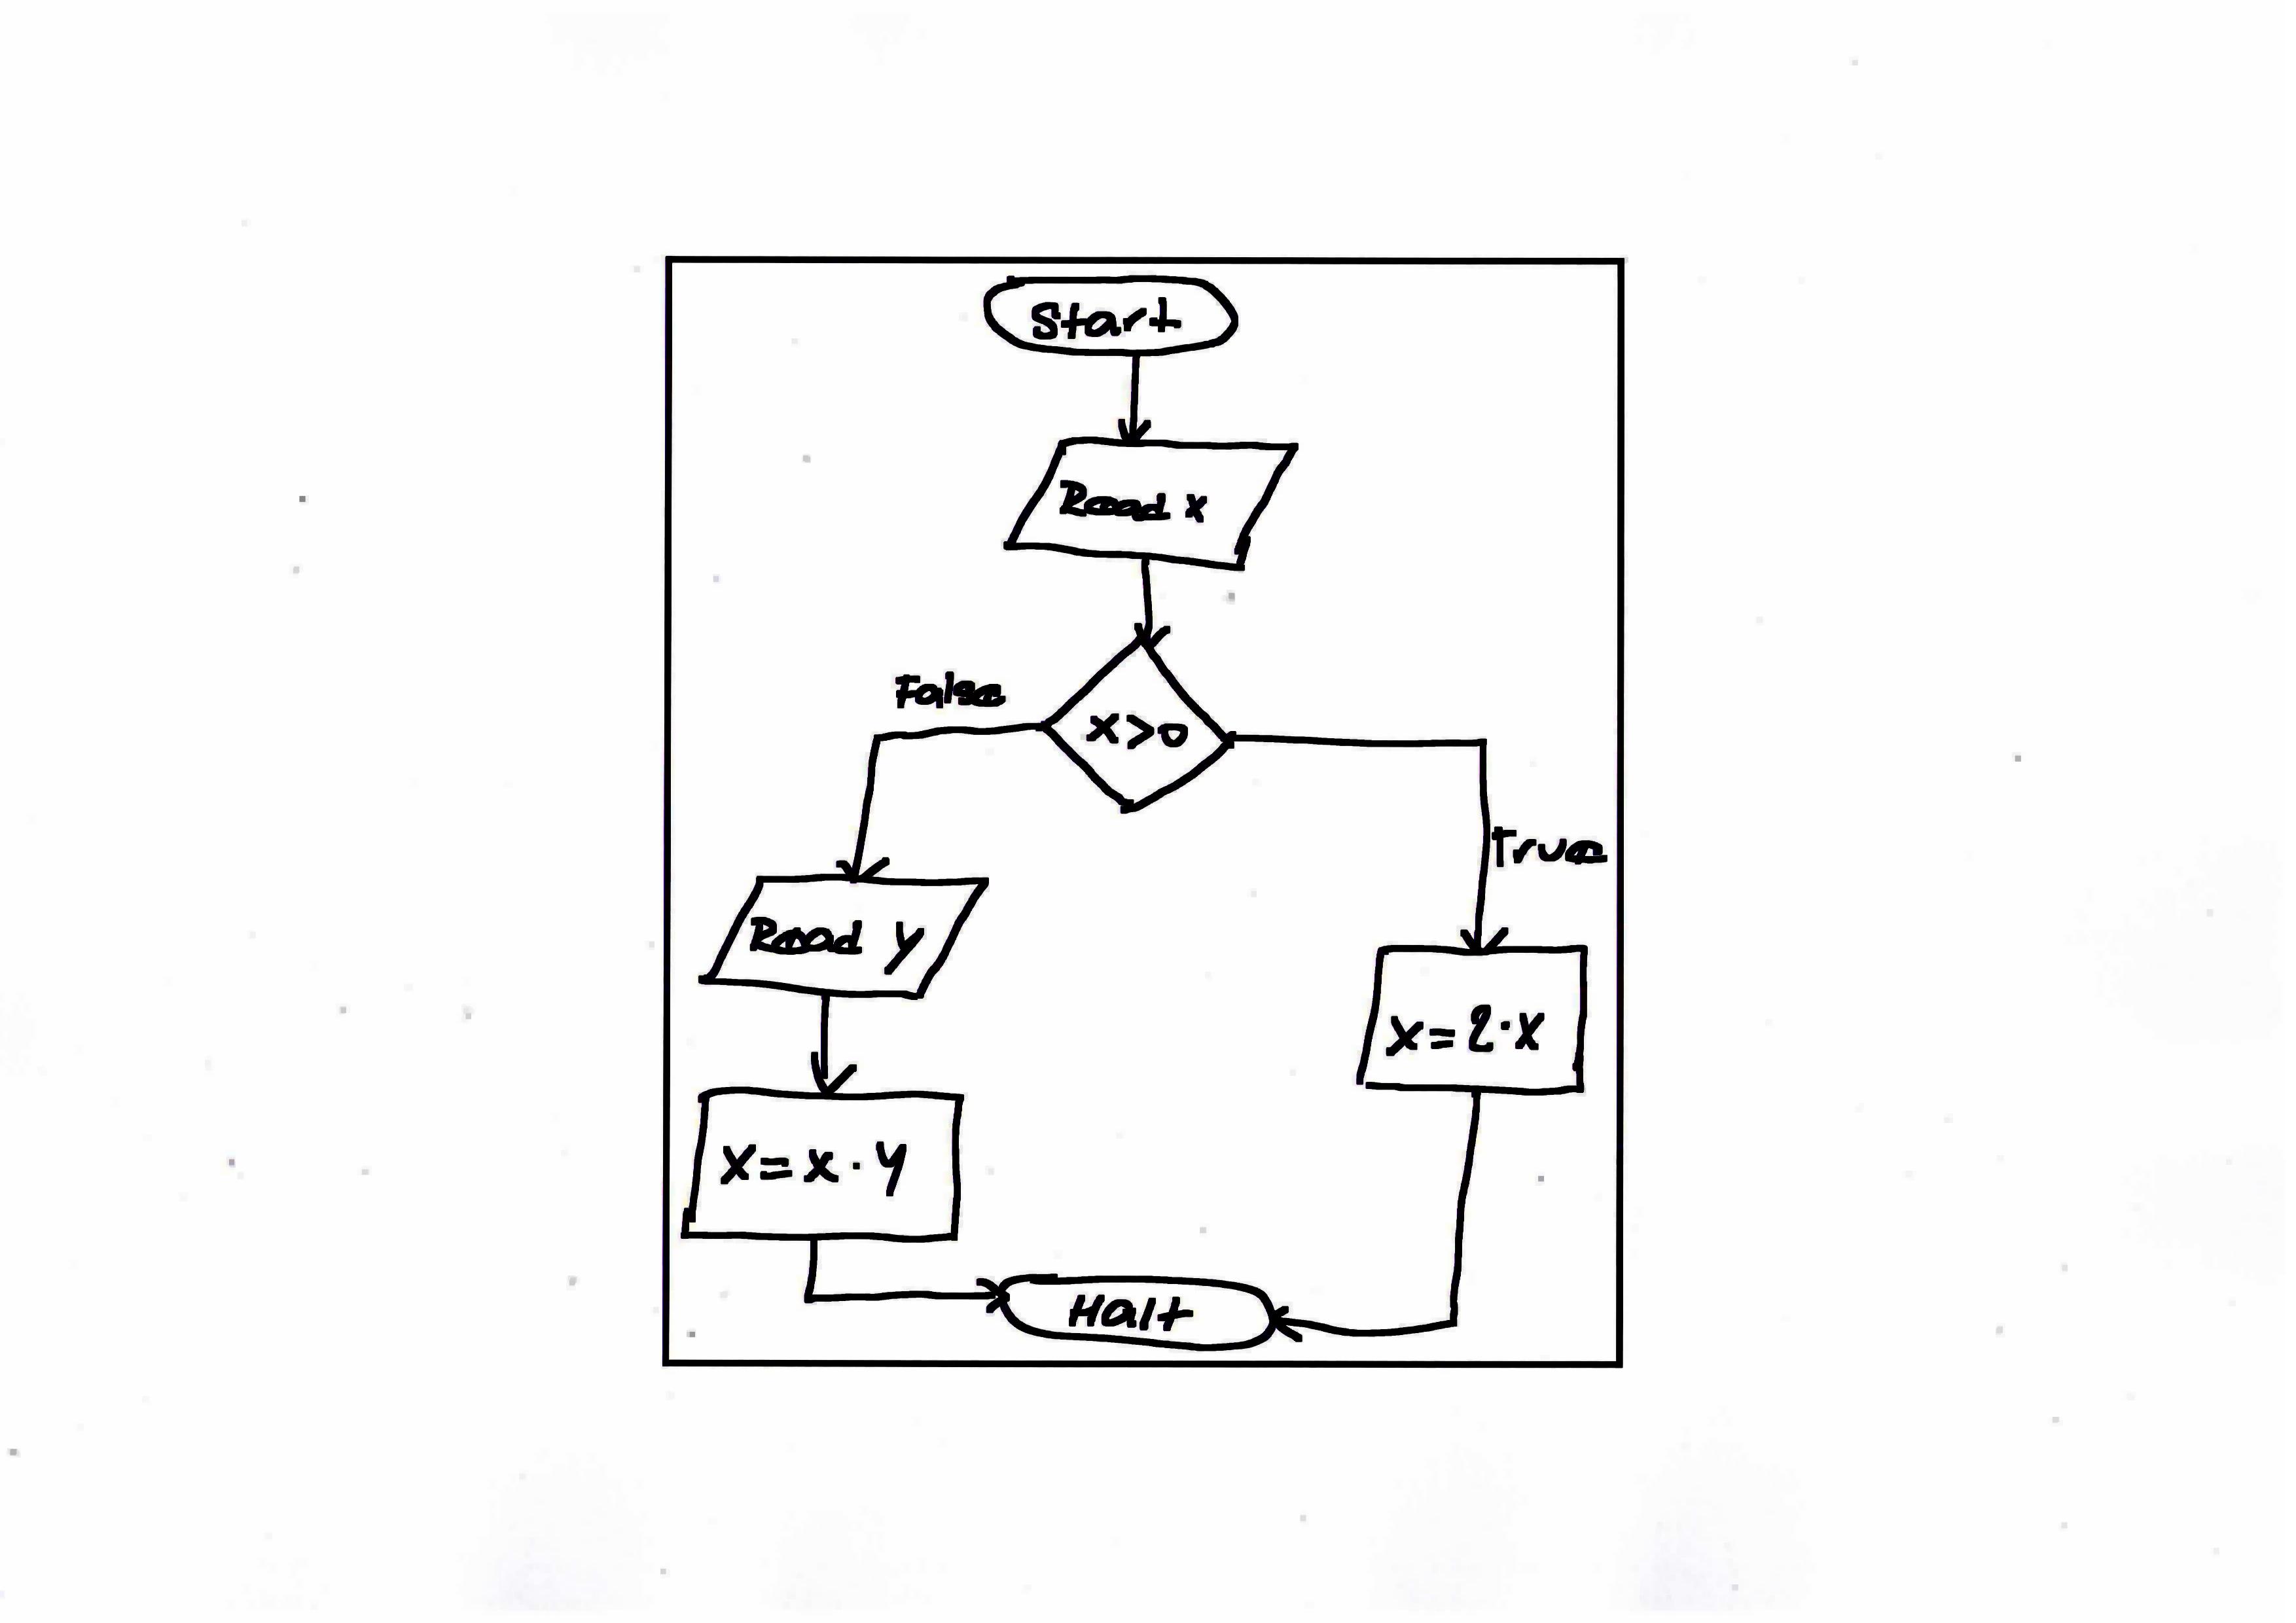 Start
Read x
x>0
False
True
Read y
x=2·x
x=x·y
Halt